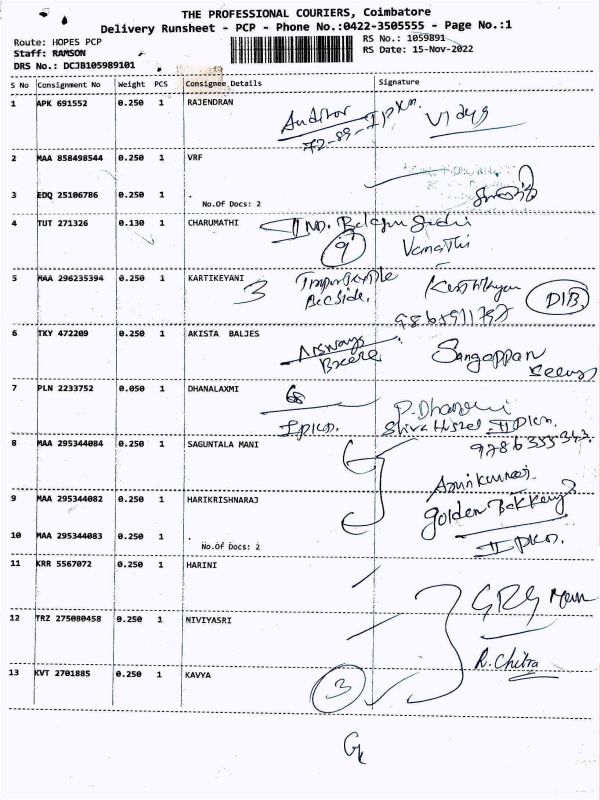 THE PROFESSIONAL COURIERS, Coimbatore
Delivery Runsheet - PCP - Phone No.:0422-3505555 - Page No.:1
Route: HOPES PCP
RS No.: 1059891
Staff: RAMSON
RS Date: 15-Nov-2022
DRS No.: DCJB105989101
S No Consignment No Weight PCS Consignee Details Signature
1 APK 691552 0.250 1 RAJENDRAN
Auditor
Vidya
2 MAA 858498544 0.250 1 VRF
3 EDQ 25106786 0.250 1 .
No.Of Docs: 2
4 TUT 271326 0.130 1 CHARUMATHI
9
Vamathi
5 MAA 296235394 0.250 1 KARTIKEYANI
3
DIB
6 TKY 472209 0.250 1 AKISTA BALJES
Sangappan
7 PLN 2233752 0.050 1 DHANALAXMI
68
I pkm.
II pkm.
8 MAA 295344084 0.250 1 SAGUNTALA MANI
9 MAA 295344082 0.250 1 HARIKRISHNARAJ
golden
10 MAA 295344083 0.250 1 .
No.Of Docs: 2
II pkm.
11 KRR 5567072 0.250 1 HARINI
GRG
12 TRZ 275080458 0.250 1 NIVIYASRI
R. Chitra
13 KVT 2701885 0.250 1 KAVYA
3